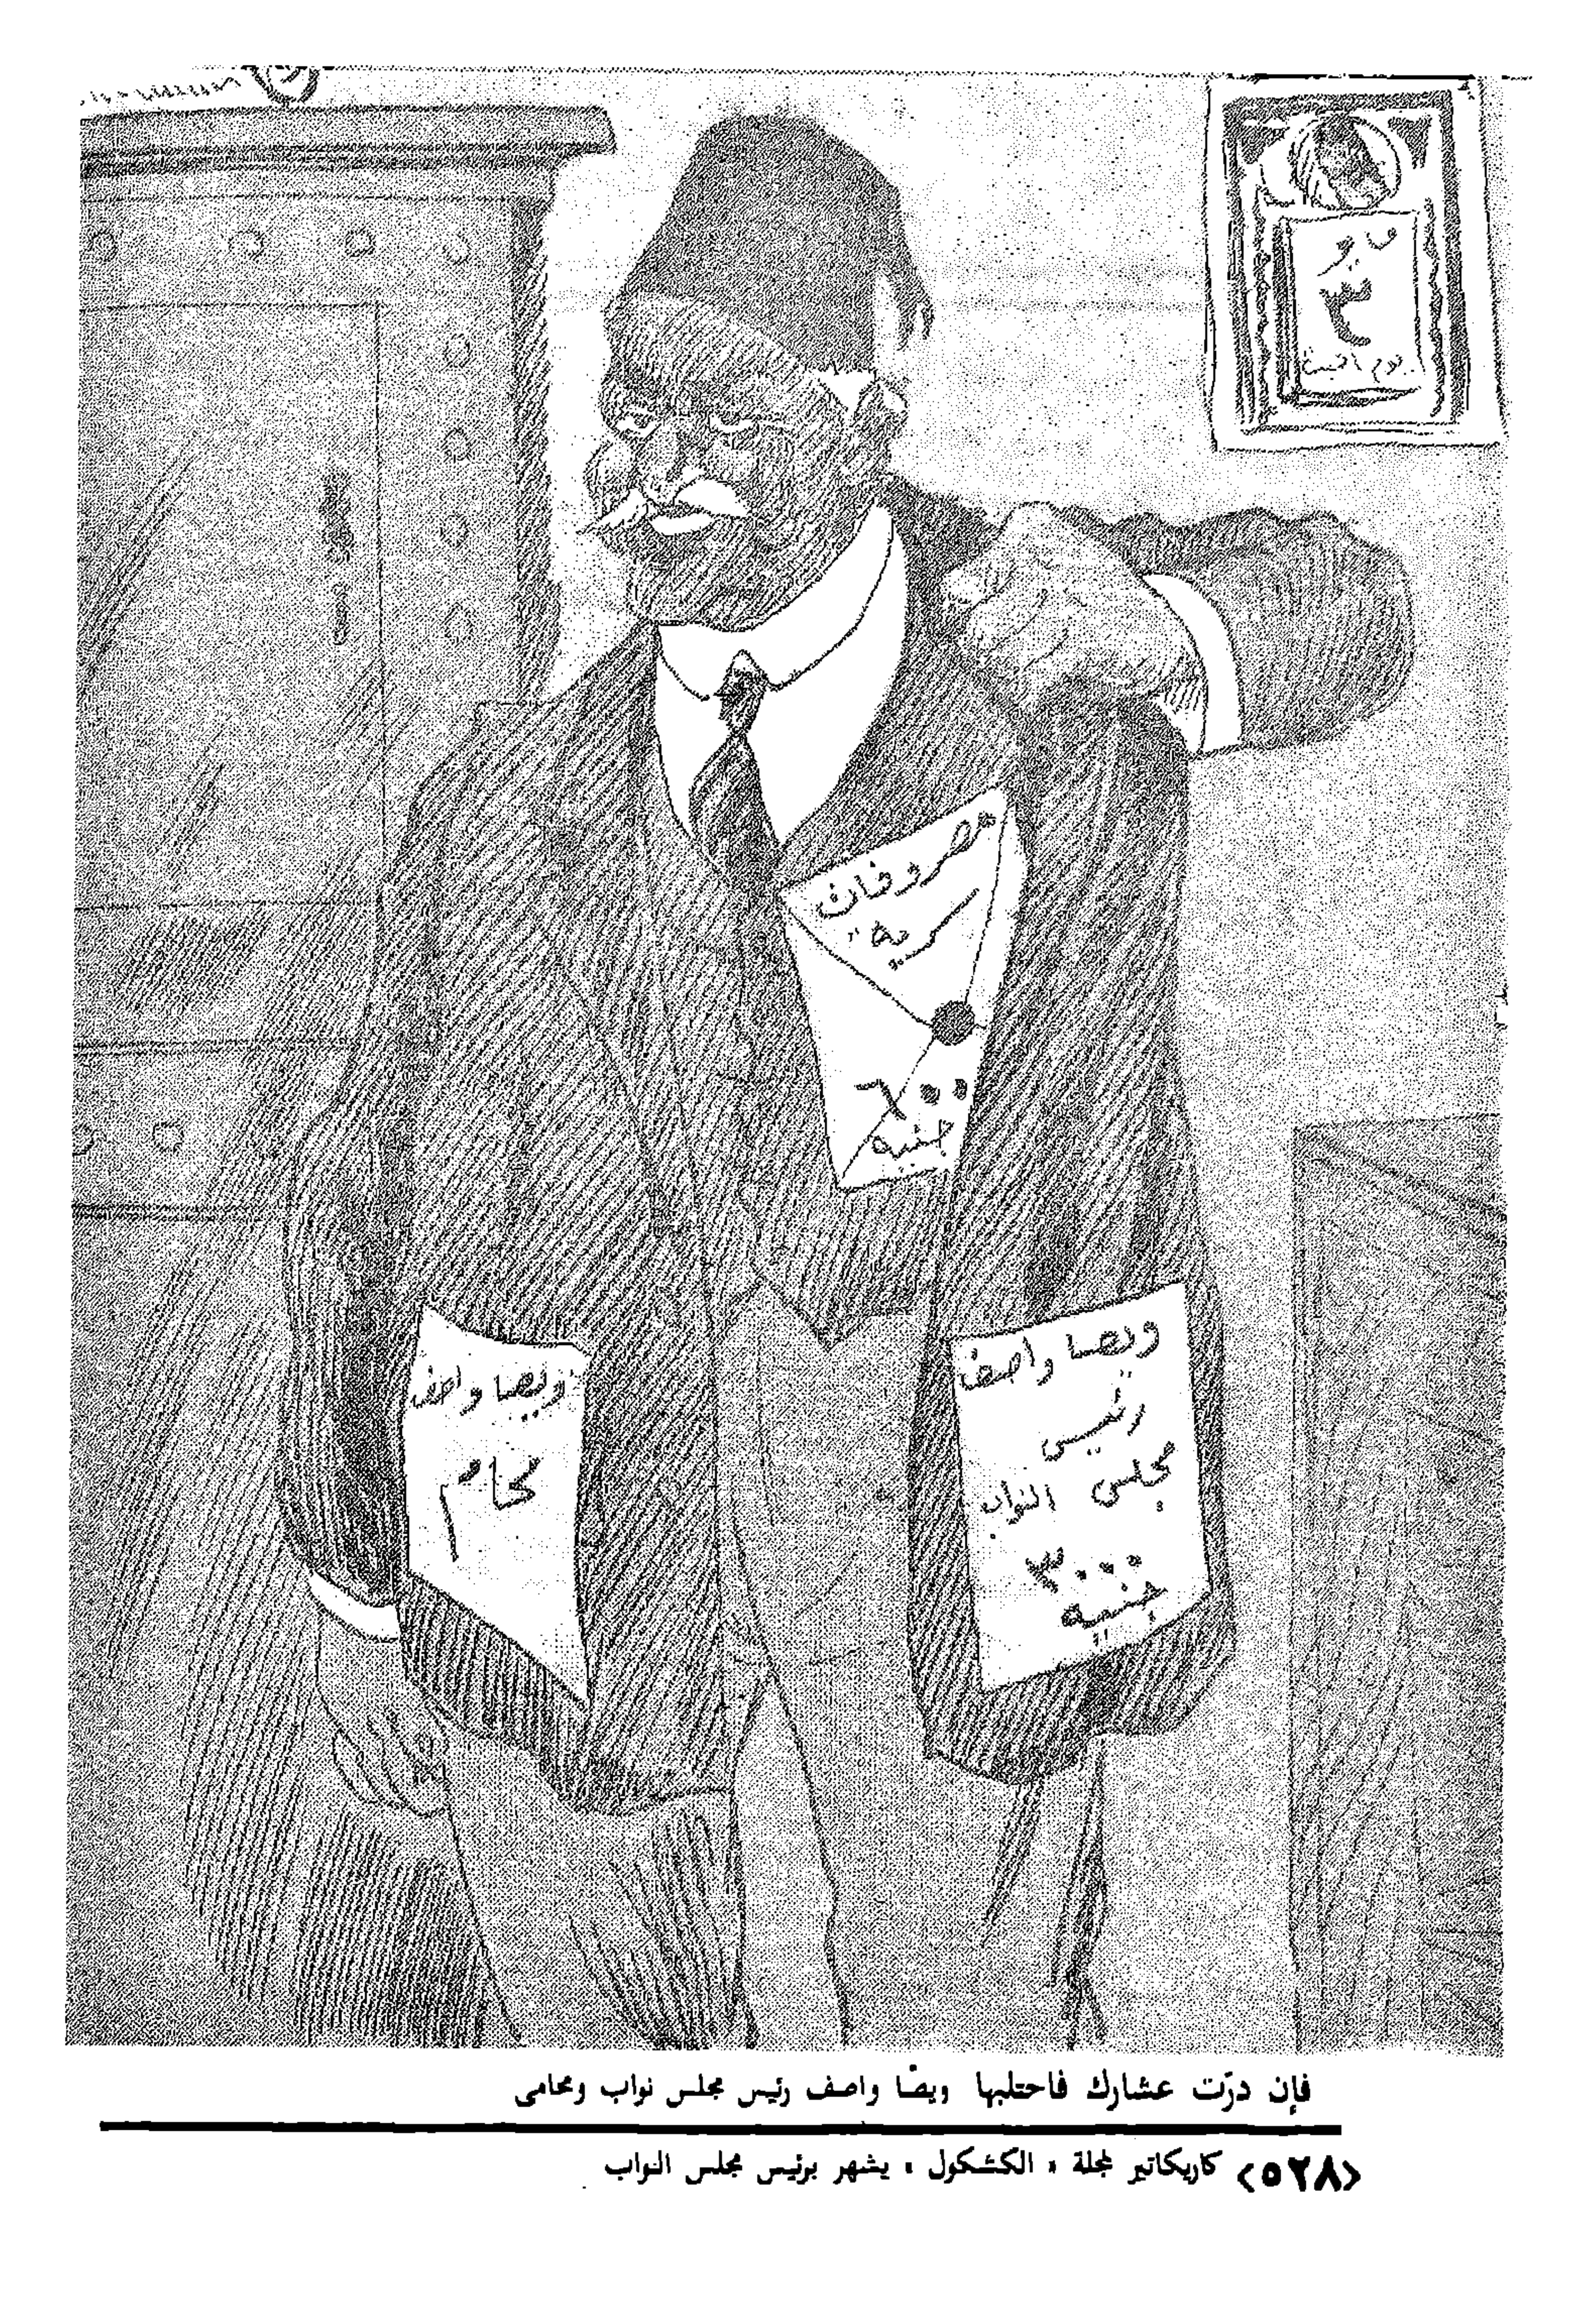 ٣
مصروفات
سرية
٦٠٠
جنيه
ويصا واصف
رئيس
مجلس النواب
٣٠٠٠
جنيه
ويصا واصف
محام
فإن درّت عشارك فاحتلبها ويصّا واصف رئيس مجلس نواب ومحامى
<٥٢٨> كاريكاتير لمجلة « الكشكول » يشهر برئيس مجلس النواب